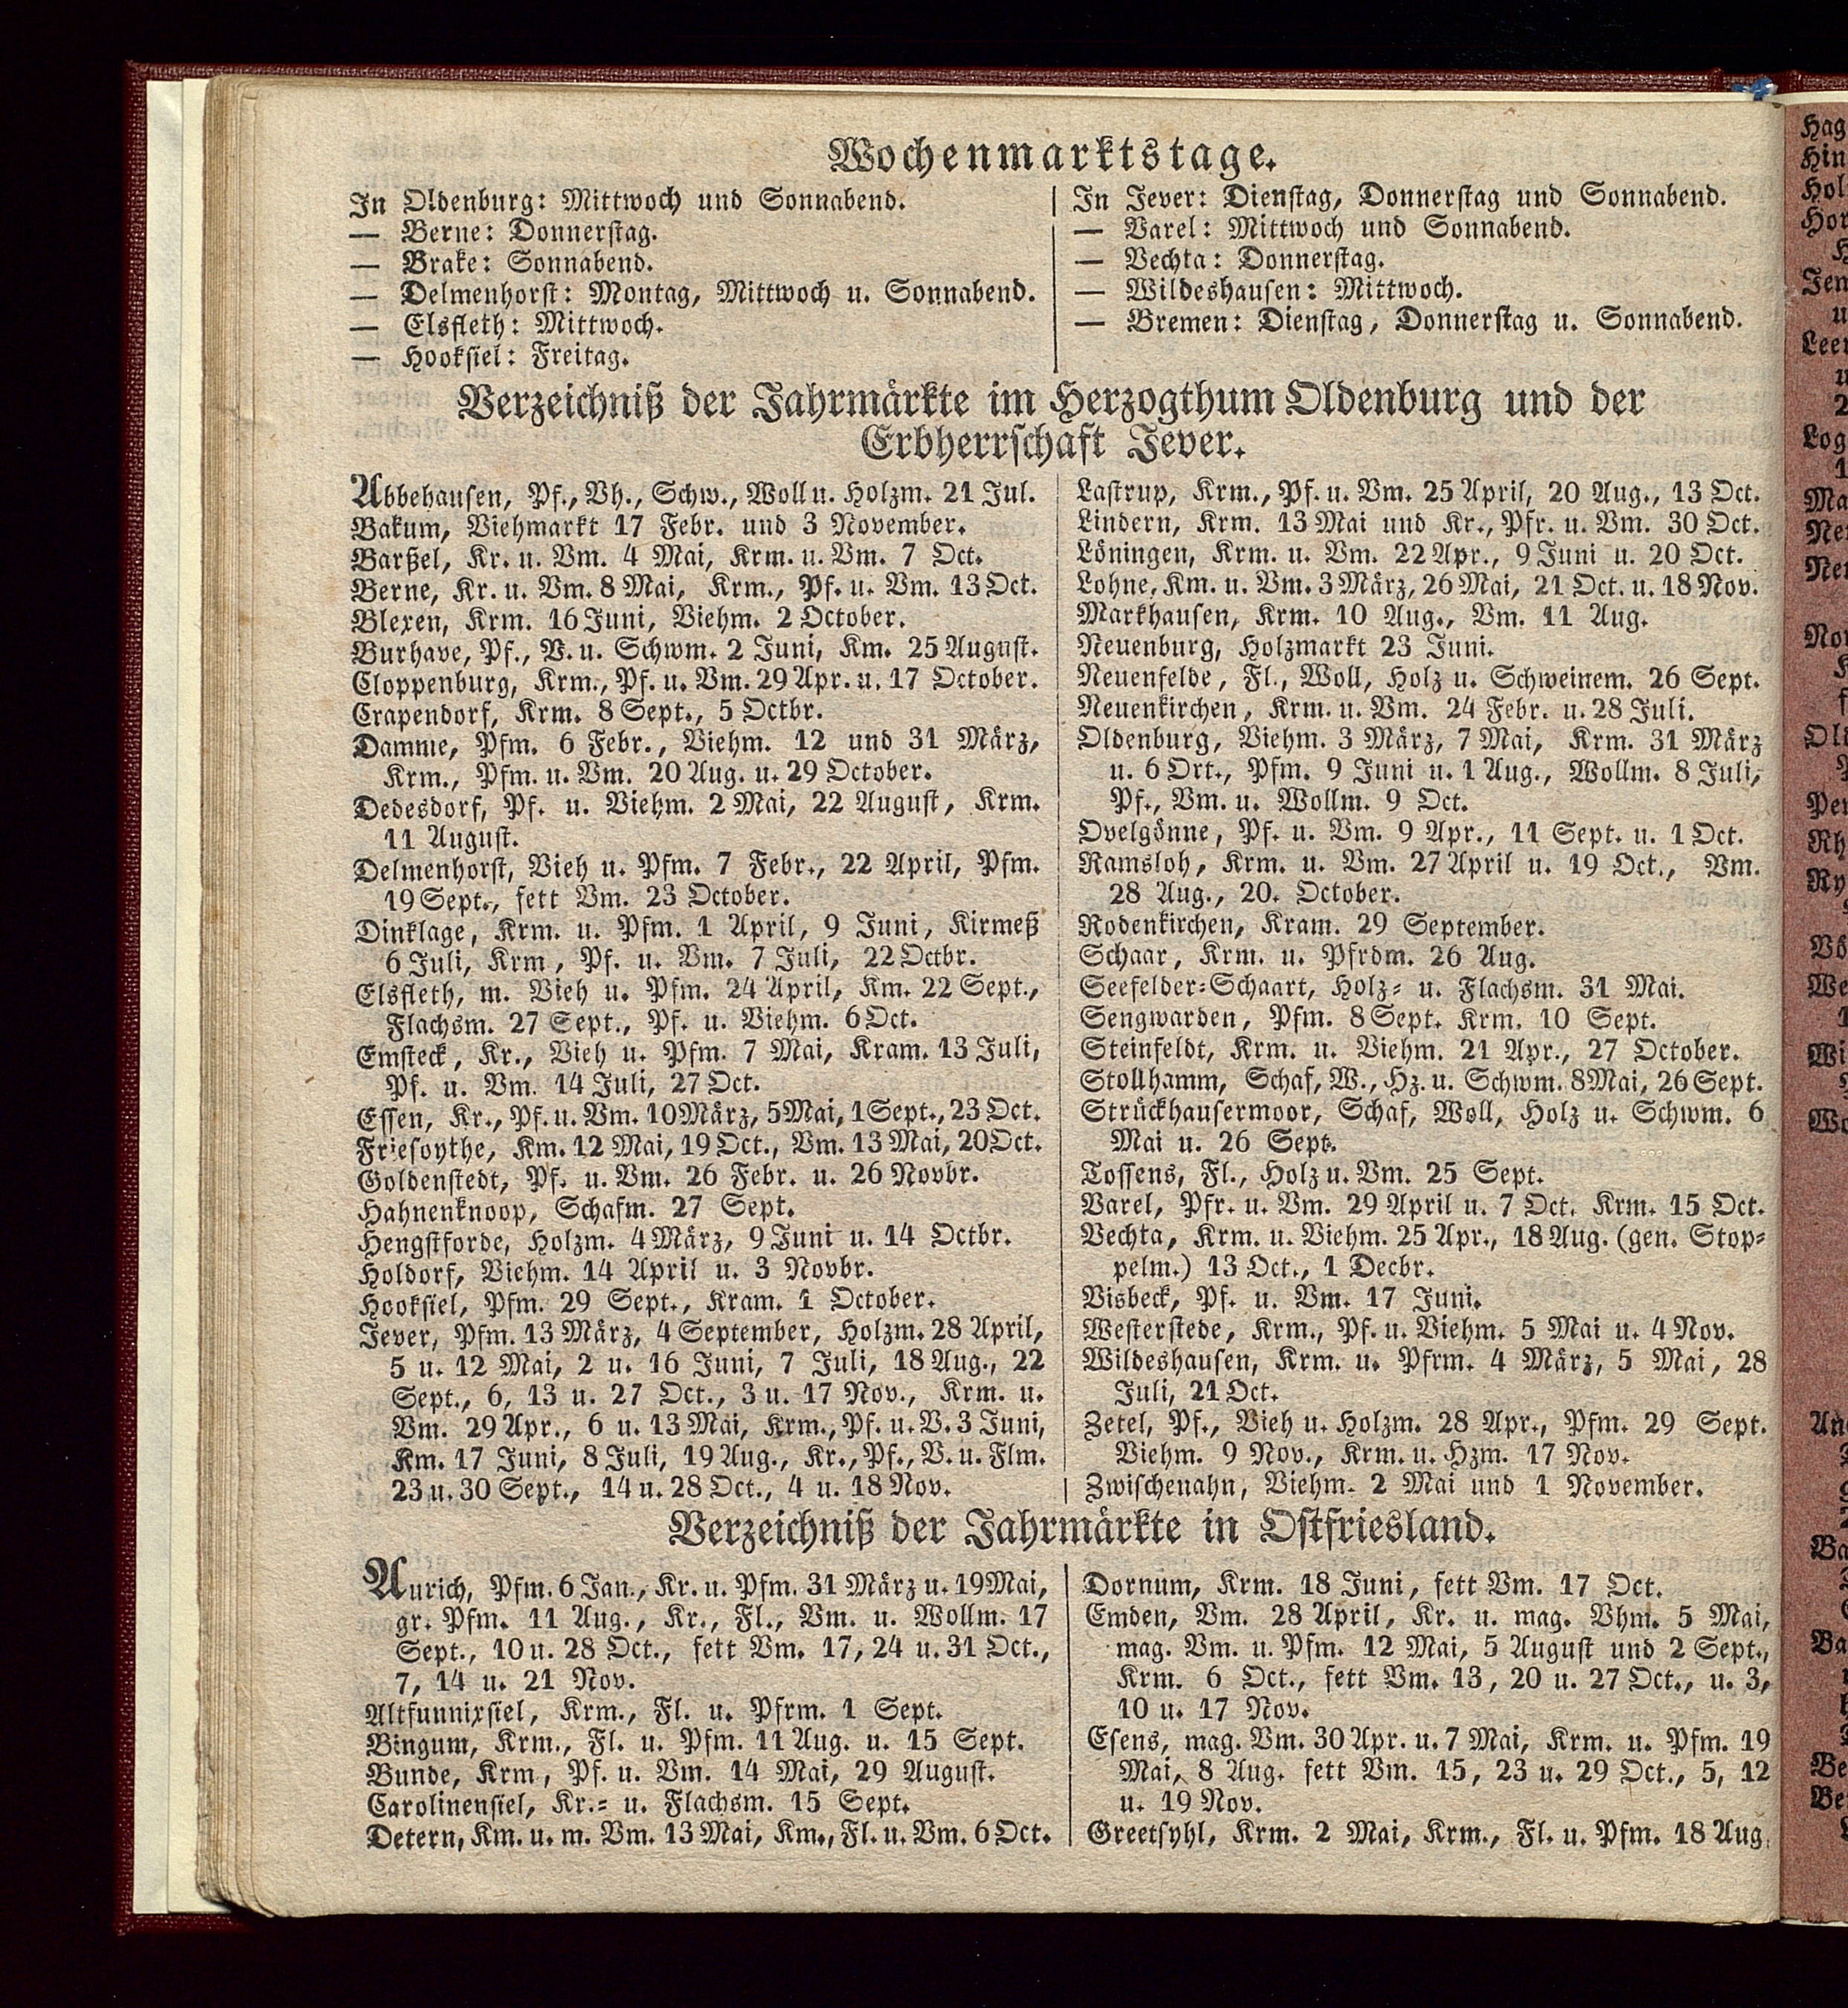 Wochenmarktstage.
In Oldenburg: Mittwoch und Sonnabend.
— Berne: Donnerstag.
— Brake: Sonnabend.
— Delmenhorst: Montag, Mittwoch u. Sonnabend.
— Elsfleth: Mittwoch.
— Hooksiel: Freitag.
In Jever: Dienstag, Donnerstag und Sonnabend.
— Varel: Mittwoch und Sonnabend.
— Vechta: Donnerstag.
— Wildeshausen: Mittwoch.
— Bremen: Dienstag, Donnerstag u. Sonnabend.
Verzeichniß der Jahrmärkte im Herzogthum Oldenburg und der
Erbherrschaft Jever.
Abbehausen, Pf., Vh., Schw., Woll u. Holzm. 21 Jul.
Bakum, Viehmarkt 17 Febr. und 3 November.
Barßel, Kr. u. Vm. 4 Mai, Krm. u. Vm. 7 Oct.
Berne, Kr. u. Vm. 8 Mai, Krm., Pf. u. Vm. 13 Oct.
Blexen, Krm. 16 Juni, Viehm. 2 October.
Burhave, Pf., V. u. Schwm. 2 Juni, Km. 25 August.
Cloppenburg, Krm., Pf. u. Vm. 29 Apr. u. 17 October.
Crapendorf, Krm. 8 Sept., 5 Octbr.
Damme, Pfm. 6 Febr., Viehm. 12 und 31 März,
Krm., Pfm. u. Vm. 20 Aug. u. 29 October.
Dedesdorf, Pf. u. Viehm. 2 Mai, 22 August, Krm.
11 August.
Delmenhorst, Vieh u. Pfm. 7 Febr., 22 April, Pfm.
19 Sept., fett Vm. 23 October.
Dinklage, Krm. u. Pfm. 1 April, 9 Juni, Kirmeß
6 Juli, Krm, Pf. u. Vm. 7 Juli, 22 Octbr.
Elsfleth, m. Vieh u. Pfm. 24 April, Km. 22 Sept.,
Flachsm. 27 Sept., Pf. u. Viehm. 6 Oct.
Emsteck, Kr., Vieh u. Pfm. 7 Mai, Kram. 13 Juli,
Pf. u. Vm. 14 Juli, 27 Oct.
Essen, Kr., Pf. u. Vm. 10 März, 5 Mai, 1 Sept., 23 Oct.
Friesoythe, Km. 12 Mai, 19 Oct., Vm. 13 Mai, 20 Oct.
Goldenstedt, Pf. u. Vm. 26 Febr. u. 26 Novbr.
Hahnenknoop, Schafm. 27 Sept.
Hengstforde, Holzm. 4 März, 9 Juni u. 14 Octbr.
Holdorf, Viehm. 14 April u. 3 Novbr.
Hooksiel, Pfm. 29 Sept., Kram. 1 October.
Jever, Pfm. 13 März, 4 September, Holzm. 28 April,
5 u. 12 Mai, 2 u. 16 Juni, 7 Juli, 18 Aug., 22
Sept., 6, 13 u. 27 Oct., 3 u. 17 Nov., Krm. u.
Vm. 29 Apr., 6 u. 13 Mai, Krm., Pf. u. V. 3 Juni,
Km. 17 Juni, 8 Juli, 19 Aug., Kr., Pf., V. u. Flm.
23 u. 30 Sept., 14 u. 28 Oct., 4 u. 18 Nov.
Lastrup, Krm., Pf. u. Vm. 25 April, 20 Aug., 13 Oct.
Lindern, Krm. 13 Mai und Kr., Pfr. u. Vm. 30 Oct.
Löningen, Krm. u. Vm. 22 Apr., 9 Juni u. 20 Oct.
Lohne, Km. u. Vm. 3 März, 26 Mai, 21 Oct. u. 18 Nov.
Markhausen, Krm. 10 Aug., Vm. 11 Aug.
Neuenburg, Holzmarkt 23 Juni.
Neuenfelde, Fl., Woll, Holz u. Schweinem. 26 Sept.
Neuenkirchen, Krm. u. Vm. 24 Febr. u. 28 Juli.
Oldenburg, Viehm. 3 März, 7 Mai, Krm. 31 März
u. 6 Ort., Pfm. 9 Juni u. 1 Aug., Wollm. 8 Juli,
Pf., Vm. u. Wollm. 9 Oct.
Ovelgönne, Pf. u. Vm. 9 Apr., 11 Sept. u. 1 Oct.
Ramsloh, Krm. u. Vm. 27 April u. 19 Oct., Vm.
28 Aug., 20. October.
Rodenkirchen, Kram. 29 September.
Schaar, Krm. u. Pfrdm. 26 Aug.
Seefelder-Schaart, Holz- u. Flachsm. 31 Mai.
Sengwarden, Pfm. 8 Sept. Krm. 10 Sept.
Steinfeldt, Krm. u. Viehm. 21 Apr., 27 October.
Stollhamm, Schaf, W., Hz. u. Schwm. 8 Mai, 26 Sept.
Strückhausermoor, Schaf, Woll, Holz u. Schwm. 6
Mai u. 26 Sept.
Tossens, Fl., Holz u. Vm. 25 Sept.
Varel, Pfr. u. Vm. 29 April u. 7 Oct. Krm. 15 Oct.
Vechta, Krm. u. Viehm. 25 Apr., 18 Aug. (gen. Stop-
pelm.) 13 Oct., 1 Decbr.
Visbeck, Pf. u. Vm. 17 Juni.
Westerstede, Krm., Pf. u. Viehm. 5 Mai u. 4 Nov.
Wildeshausen, Krm. u. Pfrm. 4 März, 5 Mai, 28
Juli, 21 Oct.
Zetel, Pf., Vieh u. Holzm. 28 Apr., Pfm. 29 Sept.
Viehm. 9 Nov., Krm. u. Hzm. 17 Nov.
Zwischenahn, Viehm. 2 Mai und 1 November.
Verzeichniß der Jahrmärkte in Ostfriesland.
Aurich, Pfm. 6 Jan., Kr. u. Pfm. 31 März u. 19 Mai,
gr. Pfm. 11 Aug., Kr., Fl., Vm. u. Wollm. 17
Sept., 10 u. 28 Oct., fett Vm. 17, 24 u. 31 Oct.,
7, 14 u. 21 Nov.
Altfunnixsiel, Krm., Fl. u. Pfrm. 1 Sept.
Bingum, Krm., Fl. u. Pfm. 11 Aug. u. 15 Sept.
Bunde, Krm, Pf. u. Vm. 14 Mai, 29 August.
Carolinensiel, Kr.- u. Flachsm. 15 Sept.
Detern, Km. u. m. Vm. 13 Mai, Km., Fl. u. Vm. 6 Oct.
Dornum, Krm. 18 Juni, fett Vm. 17 Oct.
Emden, Vm. 28 April, Kr. u. mag. Vhm. 5 Mai,
mag. Vm. u. Pfm. 12 Mai, 5 August und 2 Sept.,
Krm. 6 Oct., fett Vm. 13, 20 u. 27 Oct., u. 3,
10 u. 17 Nov.
Esens, mag. Vm. 30 Apr. u. 7 Mai, Krm. u. Pfm. 19
Mai, 8 Aug. fett Vm. 15, 23 u. 29 Oct., 5, 12
u. 19 Nov.
Greetsyhl, Krm. 2 Mai, Krm., Fl. u. Pfm. 18 Aug.